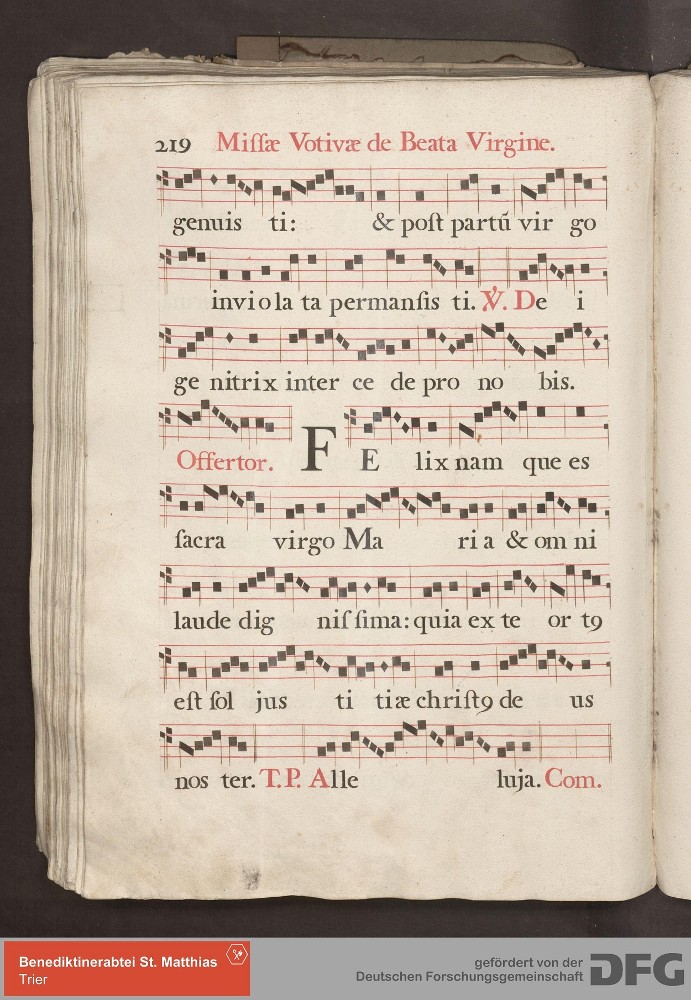 219 Miſſæ Votivæ de Beata Virgine.
genuis ti: & poſt partū vir go
inviola ta permanſis ti. ℣. De i
ge nitrix inter ce de pro no bis.
Offertor. FE lix nam que es
ſacra virgo Ma ri a & om ni
laude dig niſ ſima: quia ex te or t9
eſt ſol jus ti tiæ chriſt9 de us
nos ter. T.P. Alle luja. Com.
Benediktinerabtei St. Matthias
Trier
gefördert von der
Deutschen Forschungsgemeinschaft DFG